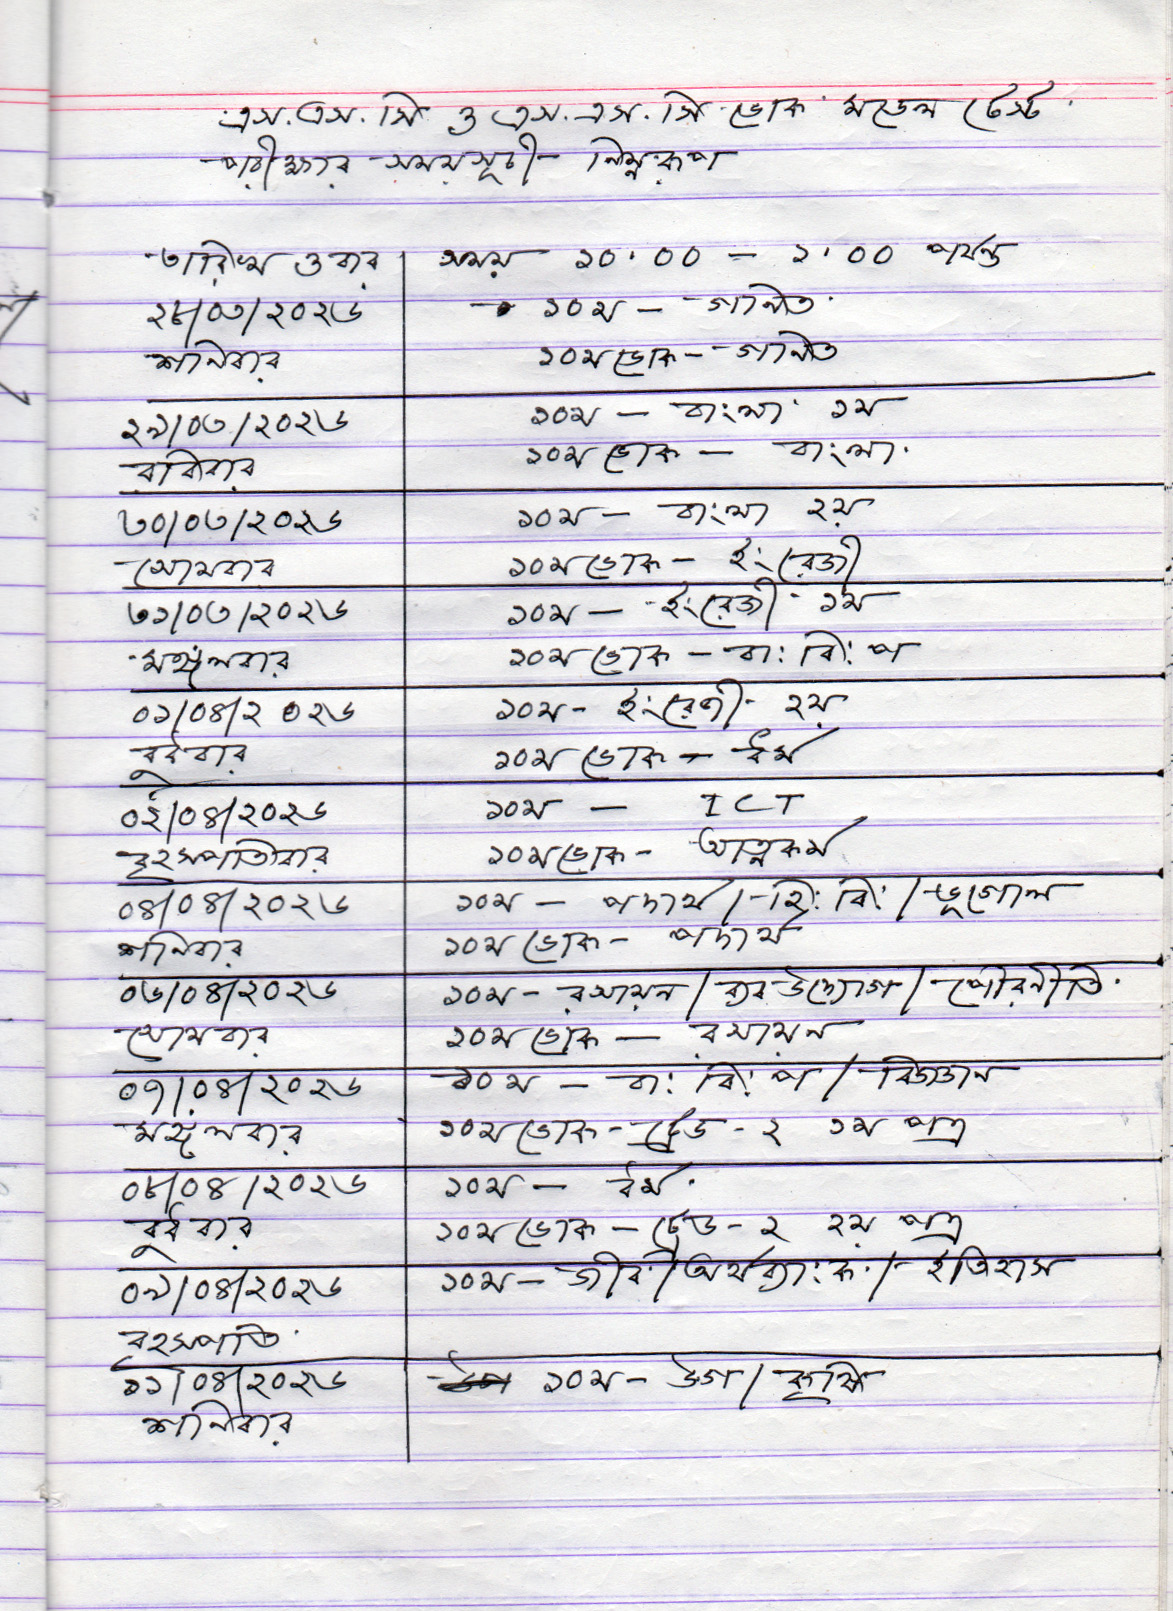 এস.এস.সি ও এস.এস.সি ভোক মডেল টেস্ট
পরীক্ষার সময়সূচী নিম্নরূপ
তারিখ ও বার সময় ১০:০০ – ১:০০ পর্যন্ত
২৮/০৩/২০২৬ ১০ম – গণিত
শনিবার ১০ম ভোক – গণিত
২৯/০৩/২০২৬ ১০ম – বাংলা ১ম
রবিবার ১০ম ভোক – বাংলা
৩০/০৩/২০২৬ ১০ম – বাংলা ২য়
সোমবার ১০ম ভোক – ইংরেজী
৩১/০৩/২০২৬ ১০ম – ইংরেজী ১ম
মঙ্গলবার ১০ম ভোক – বা: বি: প
০১/০৪/২০২৬ ১০ম – ইংরেজী ২য়
বুধবার ১০ম ভোক – ধর্ম
০২/০৪/২০২৬ ১০ম – ICT
বৃহসপতিবার ১০ম ভোক – আত্মকর্ম
০৪/০৪/২০২৬ ১০ম – পদার্থ / হি: বি: / ভূগোল
শনিবার ১০ম ভোক – পদার্থ
০৬/০৪/২০২৬ ১০ম – রসায়ন / ব্যব উদ্যোগ / পৌরনীতি
সোমবার ১০ম ভোক – রসায়ন
০৭/০৪/২০২৬ ১০ম – বা: বি: প / বিজ্ঞান
মঙ্গলবার ১০ম ভোক – ট্রেড - ২ ১ম পত্র
০৮/০৪/২০২৬ ১০ম – ধর্ম
বুধবার ১০ম ভোক – ট্রেড - ২ ২য় পত্র
০৯/০৪/২০২৬ ১০ম – জীব / অর্থ ব্যাংক / ইতিহাস
বৃহসপতি
১১/০৪/২০২৬ ১০ম – উগ / কৃষি
শনিবার